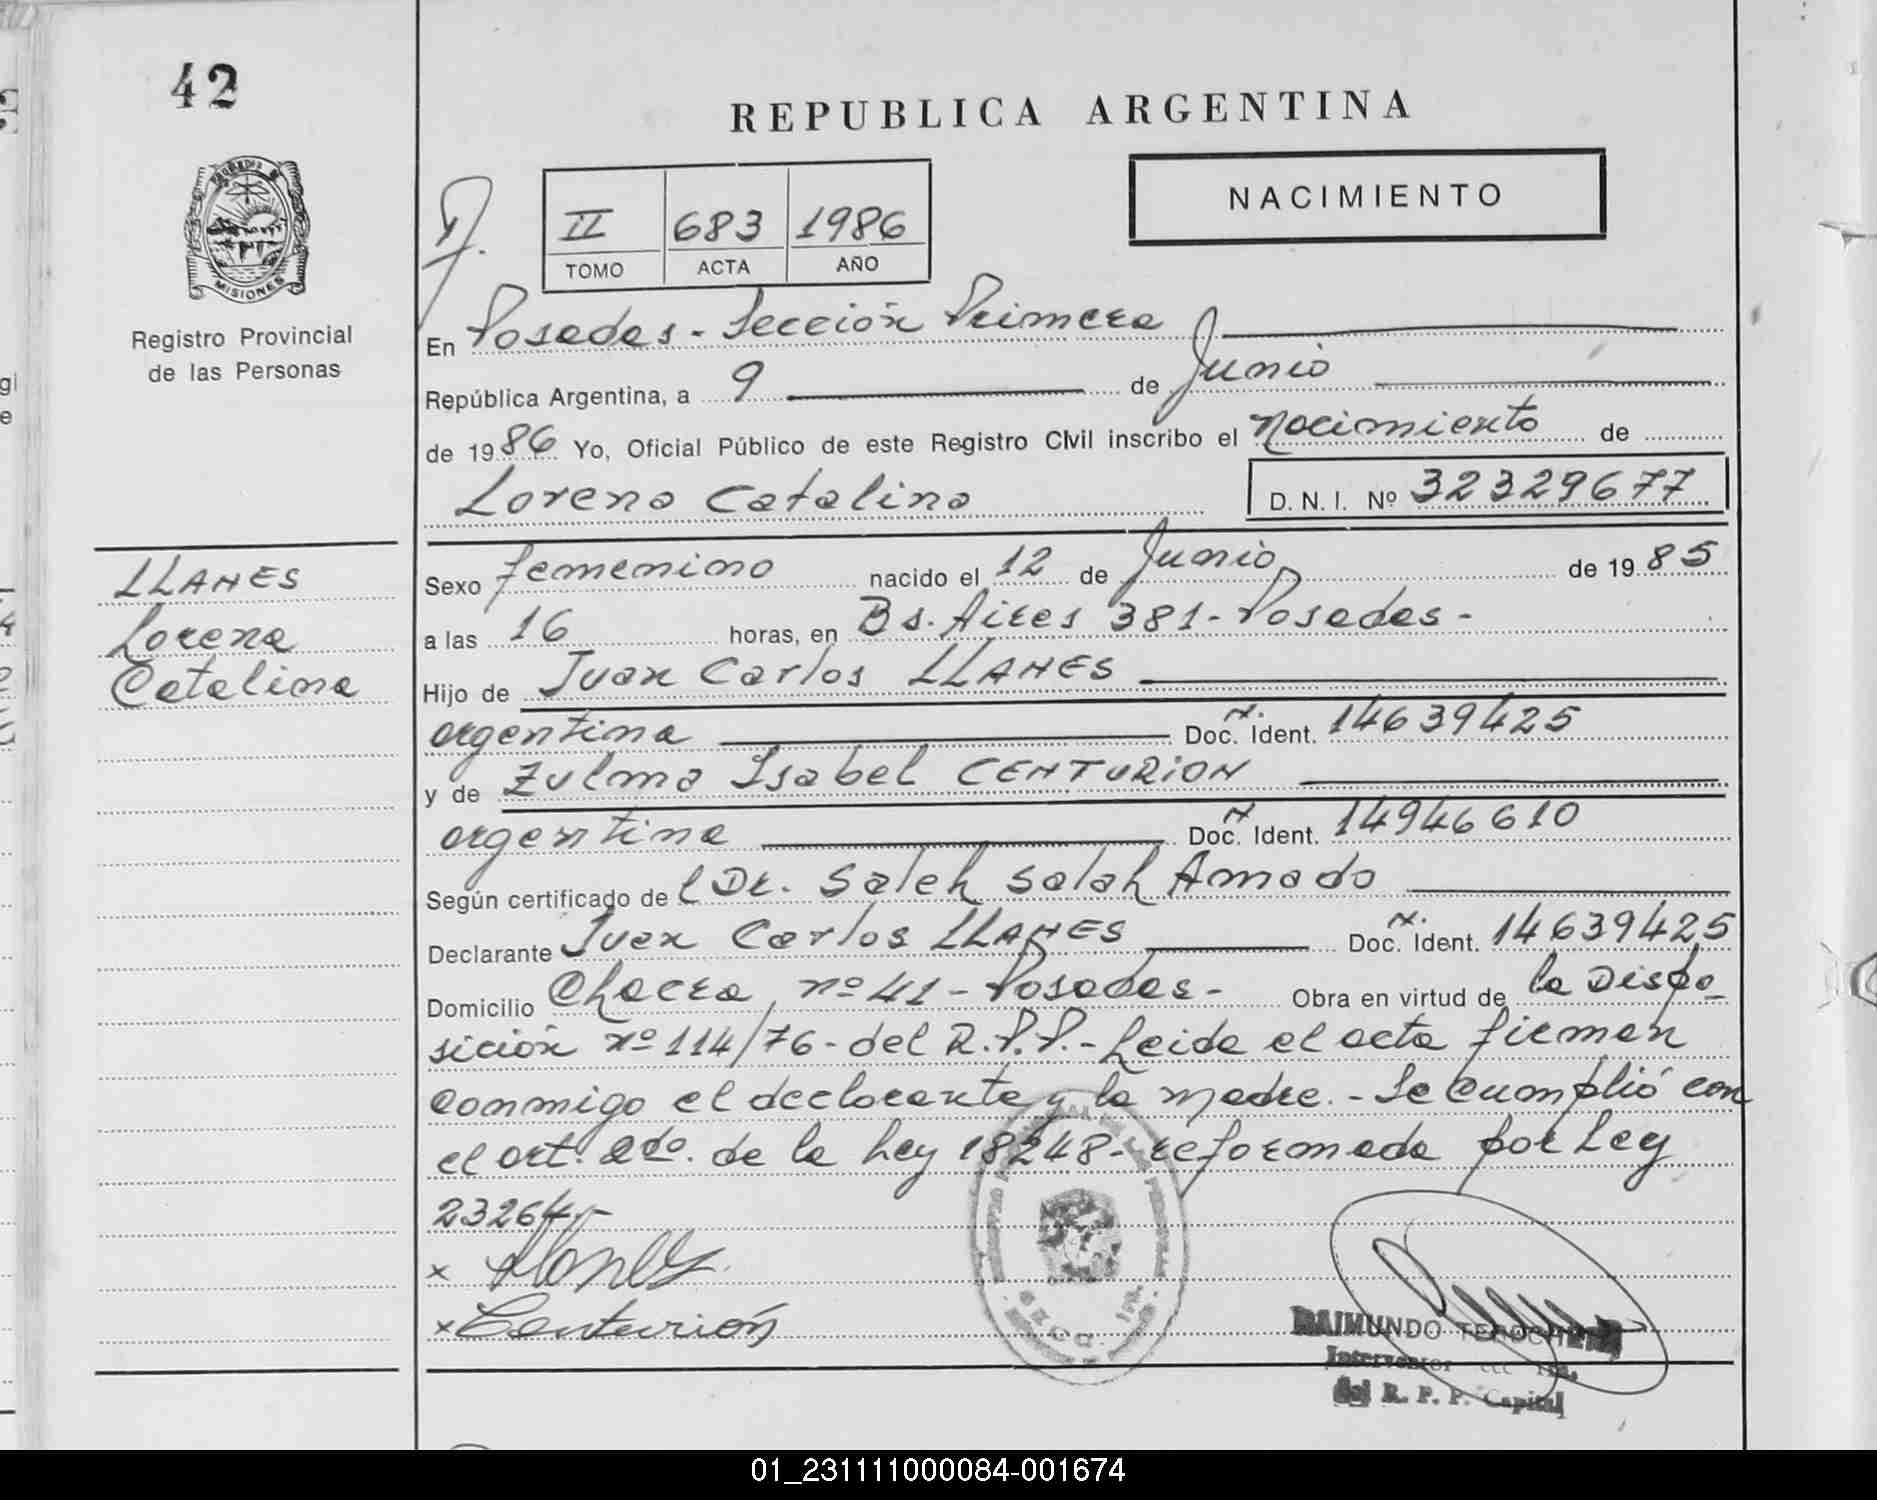 42
REPUBLICA ARGENTINA
NACIMIENTO
II 683 1986
TOMO ACTA AÑO
MISIONES
Registro Provincial
de las Personas
En Posadas - Sección Primera
República Argentina, a 9 de Junio
de 1986 Yo, Oficial Público de este Registro Civil inscribo el nacimiento de
Lorena Catalina D. N. I. Nº 32329677
LLANES
Lorena
Catalina
Sexo femenino nacido el 12 de Junio de 1985
a las 16 horas, en Bs. Aires 381 - Posadas -
Hijo de Juan Carlos LLANES
argentina Doc. N. Ident. 14639425
y de Zulma Isabel CENTURION
argentina Doc. N. Ident. 14946610
Según certificado del Dr. Saleh Salah Amado
Declarante Juan Carlos LLANES Doc. N. Ident. 14639425
Domicilio Chacra nº 41 - Posadas - Obra en virtud de la Dispo
sición nº 114/76 - del R.P.P. - Leida el acta firman
conmigo el declarante y la madre. - Se cumplió con
el art. 2do. de la Ley 18248 - reformada por Ley
23264. -
x Llanes
x Centurión
RAIMUNDO
Interventor
del R. P. P. Capital
01_231111000084-001674